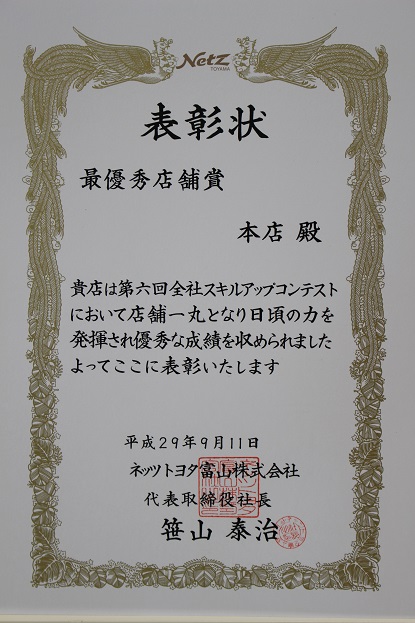 Netz
TOYAMA
表彰状
最優秀店舗賞
本店 殿
貴店は第六回全社スキルアップコンテスト
において店舗一丸となり日頃の力を
発揮され優秀な成績を収められました
よってここに表彰いたします
平成29年9月11日
ネッツトヨタ富山株式会社
代表取締役社長
笹山 泰治